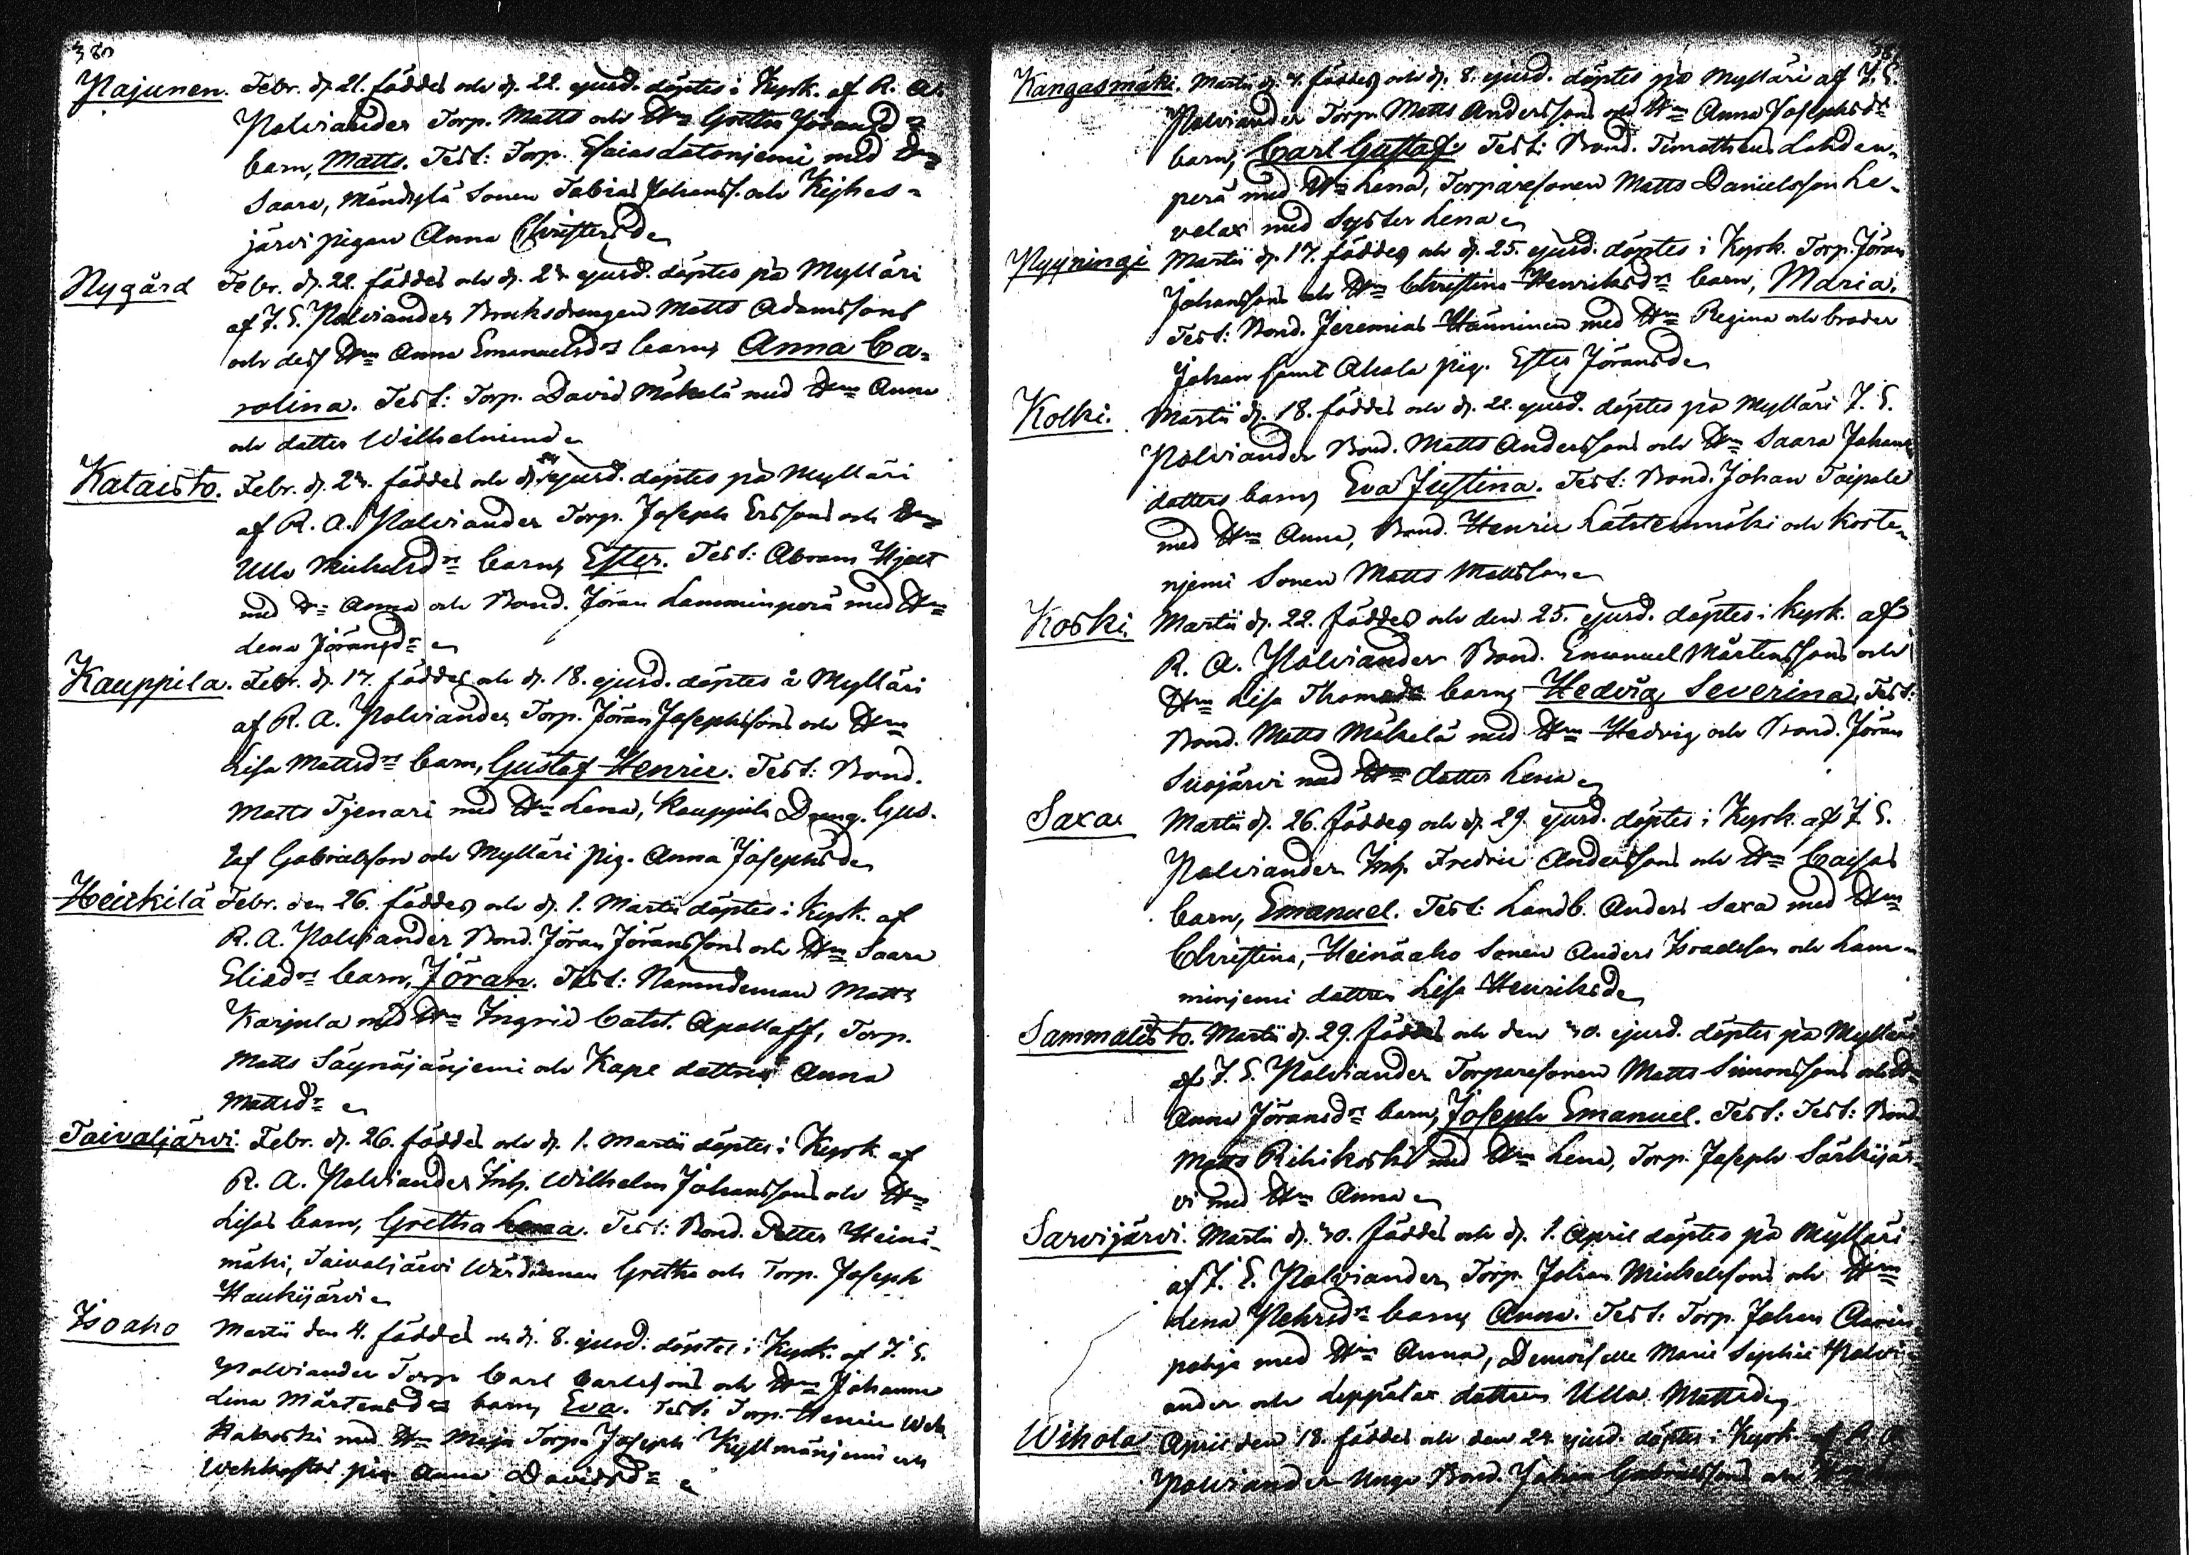 380
Pajunen. Febr. d. 21. föddes och d. 22. ejusd. döptes i Kyrk. af R. A.
Polviander Torp. Matts och H:u Gretha Jöransd:rs
barn, Matts. Test: Torp. Esaias Latonjemi med H:u
Saara, Mändylä Sonen Tobias Johanss. och Kejhes-
järvi pigan Anna Christersd.
Nygård Febr. d. 22. föddes och d. 24. ejusd. döptes på Mylläri
af J. E. Polviander Bruksdrengen Matts Adamssons
och dess H:u Anna Emanuelsd:rs barn, Anna Ca-
rolina. Test: Torp. David Mäkelä med H:u Anna
och dotter Wilhelmina
Kataisto. Febr. d. 24. föddes och d. ejusd. döptes på Mylläri
af R. A. Polviander Torp. Joseph Erssons och H:u
Ulla Michelsd:rs barn, Ester. Test: Abram Hjelt
med H:u Anna och Bond. Jöran Lamminperä med H:u
Lena Jöransd:r
Kauppila. Febr. d. 17. föddes och d. 18. ejusd. döptes å Mylläri
af R. A. Polviander Torp. Jöran Josephssons och H:u
Lisa Mattsd:rs barn, Gustaf Henric. Test: Bond.
Matts Tjenari med H:u Lena, Kauppila Dreng. Gus-
taf Gabrielsson och Mylläri pig. Anna Josephsd.
Heickilä Febr. den 26. föddes och d. 1. Martii döptes i Kyrk. af
R. A. Polviander Bond. Jöran Jöranssons och H:u Saara
Eliæd:rs barn, Jöran. Test: Nämndeman Matts
Karjula med H:u Ingrid Catst. Apolloff, Torp.
Matts Säynäjänjemi och Kape dottren Anna
Mattsd:r
Taivaljärvi. Febr. d. 26. föddes och d. 1. Martii döptes i Kyrk. af
R. A. Polviander Inh. Wilhelm Johanssons och H:u
Lisas barn, Gretha Lena. Test: Bond. Petter Heinä-
mäki, Taivaljärvi Wärdinnan Gretha och Torp. Joseph
Haukijärvi
Isoaho Martii den 4. föddes och d. 8. ejusd. döptes i Kyrk. af J. E.
Polviander Torp. Carl Carlssons och H:u Johanna
Lina Mårtensd:rs barn, Eva. Test: Torp. Henric Weh
Kakoski med H:u Maja Torp. Joseph Kyllmänjemi och
Wehkoskos pig. Anna Davidsd:r
Kangasmäki. Martii d. 4. föddes och d. 8. ejusd. döptes på Mylläri af J. E.
Polviander Torp. Matts Anderssons och H:u Anna Josephsd:rs
barn, Carl Gustaf. Test: Bond. Timotheus Lahden-
perä med H:u Lena, Torparesonen Matts Danielsson Le-
valax med Syster Lena
Pyyningi Martii d. 17. föddes och d. 25. ejusd. döptes i Kyrk. Torp. Jöran
Johanssons och H:u Christina Henriksd:rs barn, Maria.
Test: Bond. Jeremias Hänninen med H:u Regina och broder
Johan samt Ahola pig. Ester Jöransd.
Kolki. Martii d. 18. föddes och d. 22. ejusd. döptes på Mylläri J. E.
Polviander Bond. Matts Anderssons och H:u Saara Johans
dotters barn, Eva Justina. Test: Bond. Johan Taipale
med H:u Anna, Bond. Henric Lätstenmäki och Korte-
njemi Sonen Matts Mattsson
Koski. Martii d. 22. föddes och den 25. ejusd. döptes i Kyrk. af
R. A. Polviander Bond. Emanuel Mårtenssons och
H:u Lisa Thomæd:rs barn, Hedvig Severina, Test:
Bond. Matts Mäkelä med H:u Hedvig och Bond. Jöran
Suojärvi med dotter Lena
Saxa Martii d. 26. föddes och d. 29. ejusd. döptes i Kyrk. af J. E.
Polviander Inh. Fredric Anderssons och H:u Caisas
barn, Emanuel. Test: Landb. Anders Saxa med H:u
Christina, Heinäaho Sonen Anders Isaelsson och Lam-
minjemi dottren Lisa Henriksd.
Sammalisto. Martii d. 29. föddes och den 30. ejusd. döptes på Mylläri
af J. E. Polviander Torparesonen Matts Simonssons och H:u
Anna Jöransd:rs barn, Joseph Emanuel. Test: Test: Bond.
Matts Rihikoski med H:u Lena, Torp. Joseph Särkijär-
vi med H:u Anna
Sarvijärvi. Martii d. 30. föddes och d. 1. April döptes på Mylläri
af J. E. Polviander Torp. Johan Michelssons och H:u
Lena Pehrsd:rs barn, Anna. Test: Torp. Johan Aarin
pohja med H:u Anna, Demoiselle Marie Sophie Polvi-
ander och Leppälax dottren Ulla Mattsd.
Wihola April den 18. föddes och den 24. ejusd. döptes i Kyrk. af R. A.
Polviander Unge Bond. Johan Gabrielssons och